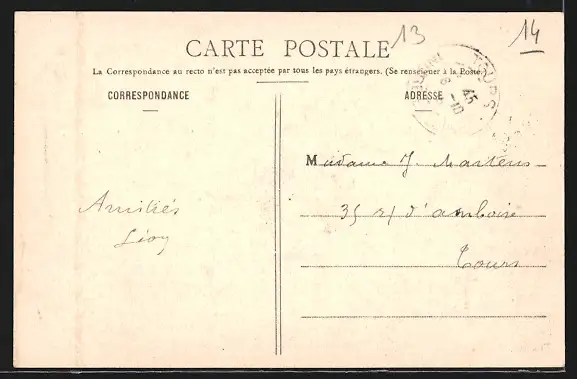 13
14
CARTE POSTALE
La Correspondance au recto n'est pas acceptée par tous les pays étrangers. (Se renseigner à la Poste.)
CORRESPONDANCE
ADRESSE
TOURS
Madame J. Martens
35 r d'amboise
Tours
Amitiés